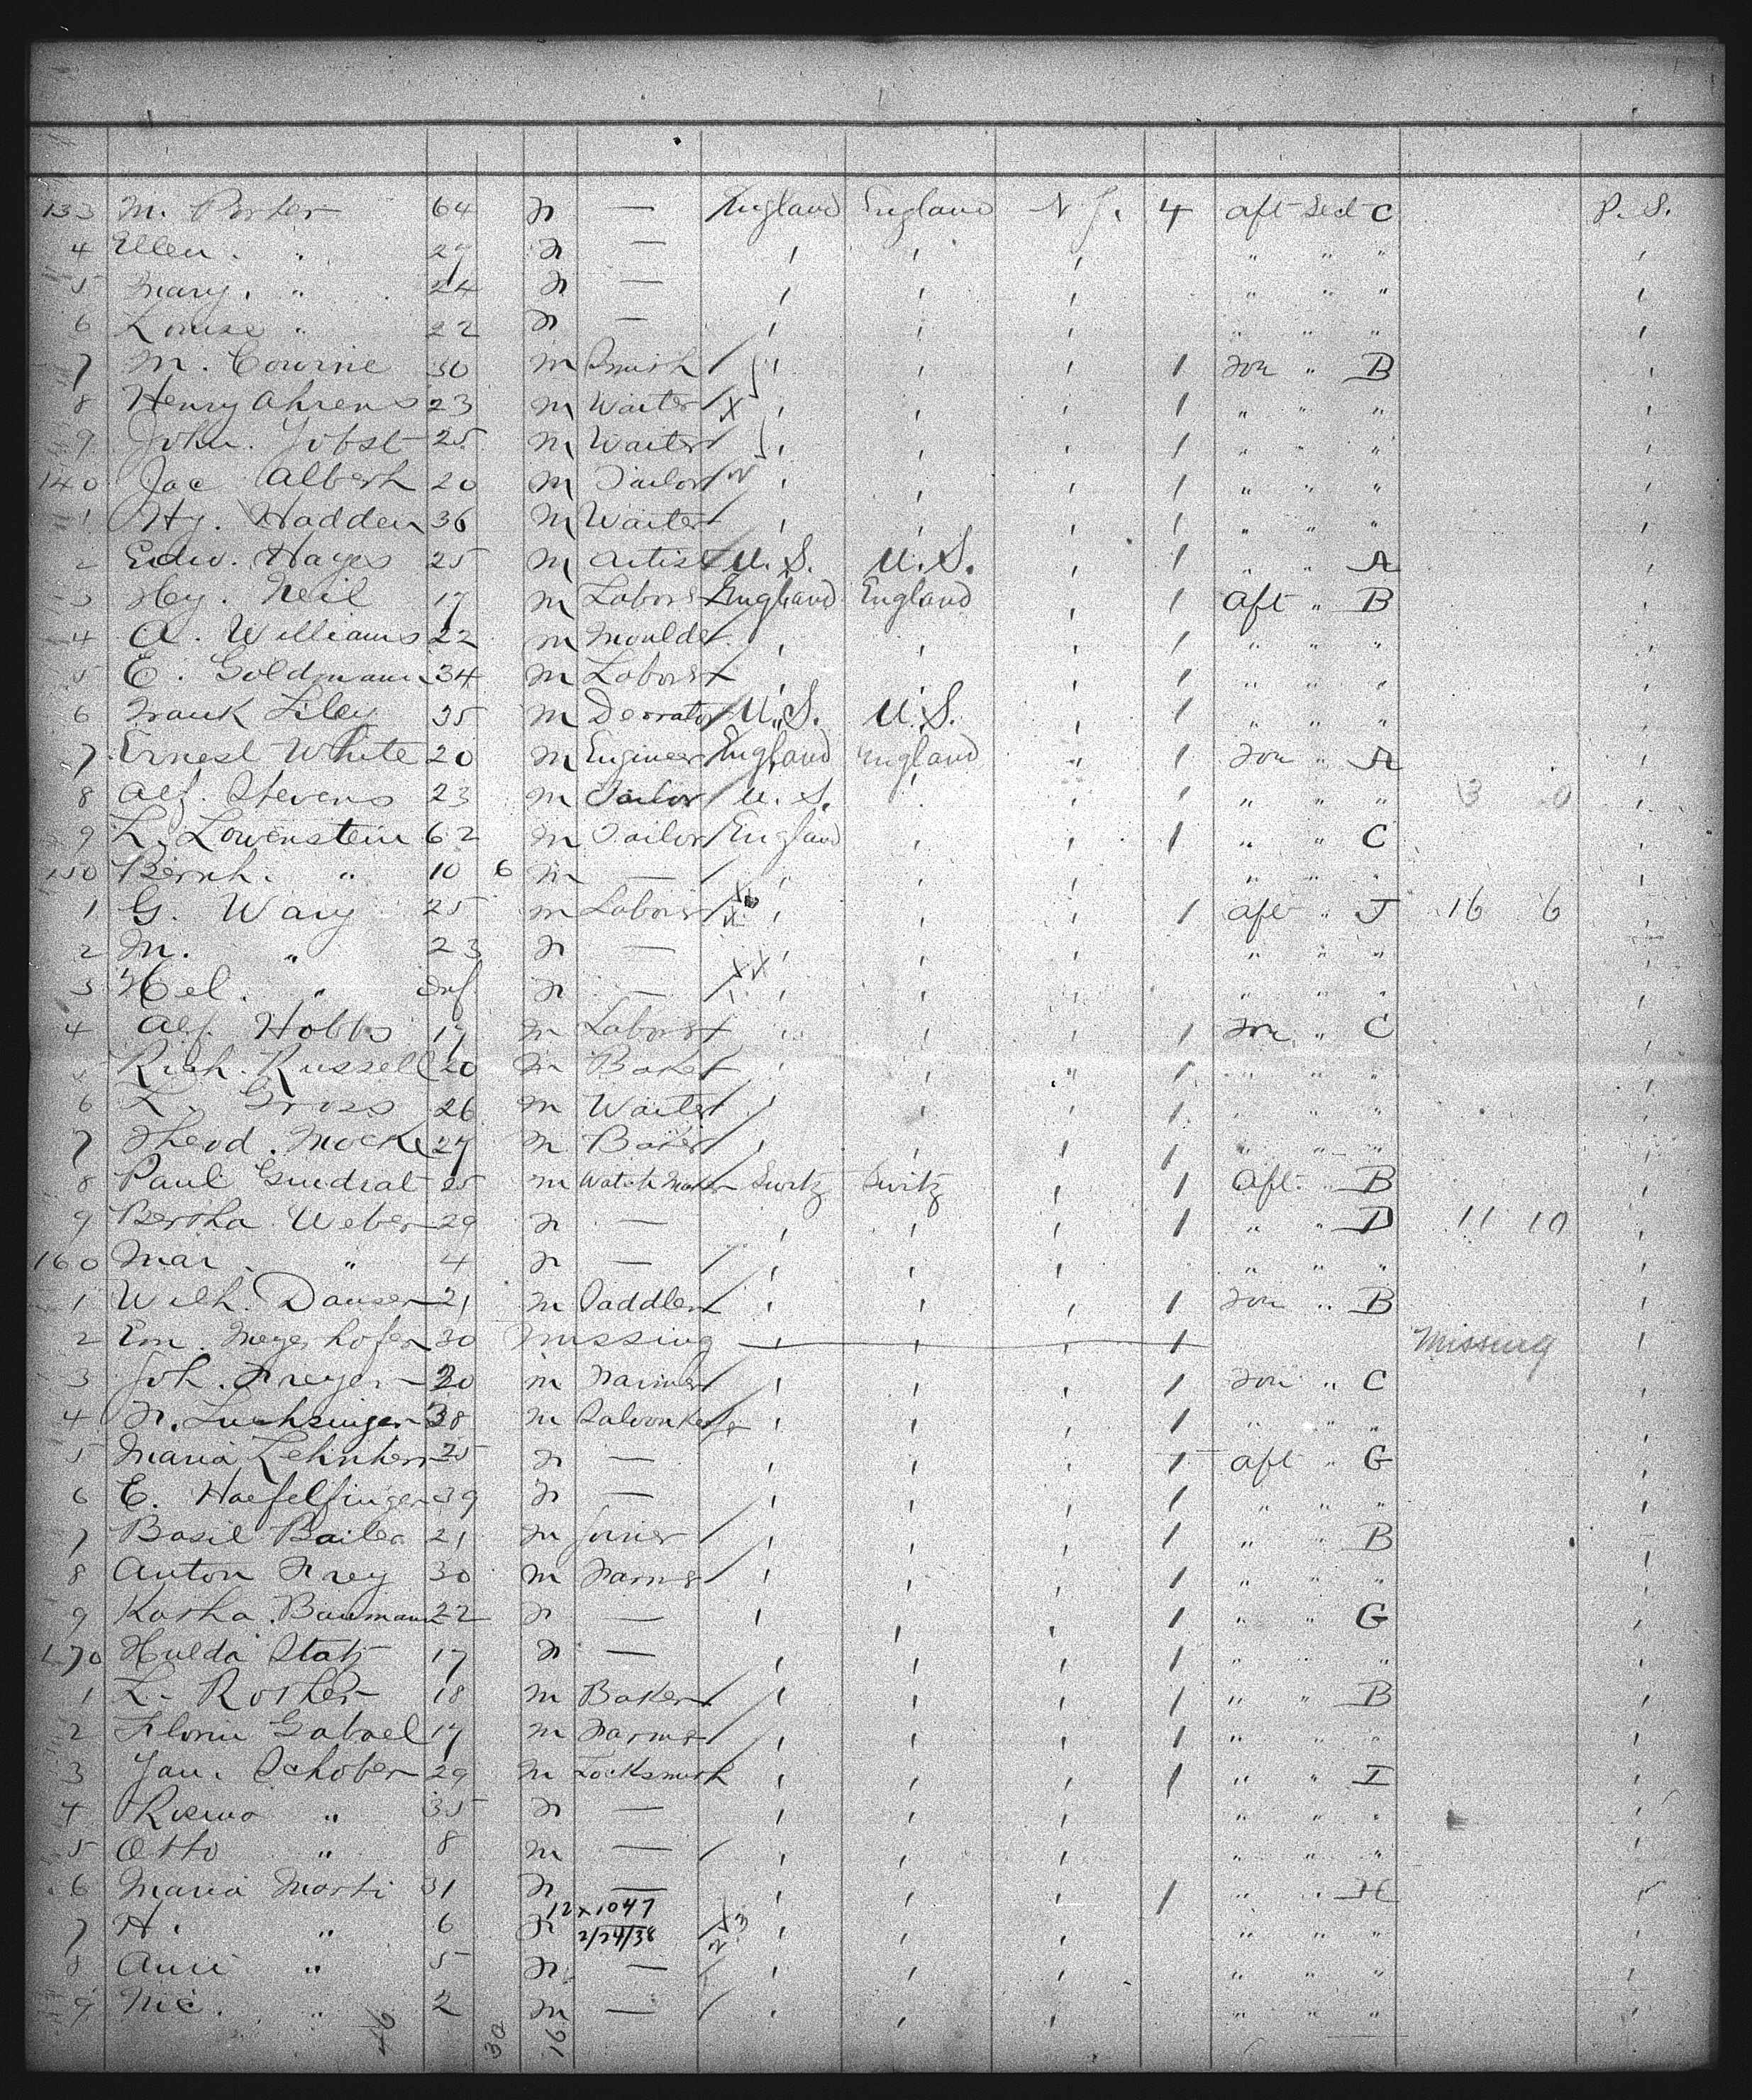 133 M. Porter 64 F — England England N.Y. 4 aft Sect C P. S.
4 Ellen " 29 F — " " " " " " "
5 Mary " 24 F — " " " " " " "
6 Louise " 22 F — " " " " " " "
7 M. Cowrie 30 m Smith / " " " 1 For " B "
8 Henry Ahrens 23 m Waiter / X " " " 1 " " " "
9 John. Jobst 25 m Waiter / " " " 1 " " " "
140 Jac Alberh 20 m Tailor / " " " 1 " " " "
1 Hy. Hadden 36 m Waiter / " " " 1 " " " "
2 Edw. Hayes 25 m Artist / U. S. U. S. " 1 " " A "
3 Hey. Neil 17 m Laborer England England " 1 aft " B "
4 A. Williams 22 m Moulder " " " 1 " " " "
5 E. Goldmann 34 m Laborer " " " 1 " " " "
6 Frank Liley 35 m Decorator / U. S. U. S. " 1 " " " "
7 Ernest White 20 m Engineer / England England " 1 For " A "
8 Alf. Stevens 23 m Tailor / U. S. " " 1 " " " 3 0 "
9 L. Lowenstein 62 m Tailor / England " " 1 " " C "
150 Bernh. " 10 6 m — / " " " " " " "
1 G. Wary 25 m Laborer / " " " 1 aft " J 16 6 "
2 M. " 23 F — " " " " " " "
3 Hel. " Inf F — / XX " " " " " " "
4 Alf. Hobbs 17 m Laborer " " " 1 For " C "
Rich. Russell 20 m Baker " " " 1 " " " "
6 L. Gross 26 m Waiter / " " " 1 " " " "
7 Theod. Mocke 27 m Baker / " " " 1 " " " "
8 Paul Gindrat 25 m Watchmaker Switz Switz " 1 Aft. " B "
9 Bertha Weber 29 F — " " " 1 " " D 11 10 "
160 Mar. " 4 F — / " " " " " " "
1 Wilh. Danser 21 m Saddler / " " " 1 For " B "
2 Em. Meyerhofer 30 Missing — " " " 1 Missing "
3 Joh. Freyer 20 m Farmer / " " " 1 For " C "
4 F. Luchsinger 38 m Saloonkeeper " " " 1 " " " "
5 Maria Lehnherr 25 F — " " " 1 aft " G "
6 E. Haefelfinger 39 F — " " " 1 " " " "
7 Basil Bailer 21 m Joiner / " " " 1 " " B "
8 Anton Frey 30 m Farmer / " " " 1 " " " "
9 Katha. Baumann 22 F — " " " 1 " " G "
170 Hulda Statz 17 F — " " " 1 " " " "
1 L. Rother 18 m Baker / " " " 1 " " B "
2 Florin Gabael 17 m Farmer / " " " 1 " " " "
3 Jan. Schober 29 m Locksmith " " " 1 " " I "
4 Rosina " 35 F — " " " " " " "
5 Otto " 8 m — / " " " " " " "
6 Maria Marti 31 F — " " " 1 " " H "
12 x 1047
7 H. " 6 F 2/24/38 / " " " " " " "
8 Anni " 5 F — / " " " " " " "
9 Nic. " 2 m — / " " " " " " "
46 30 16